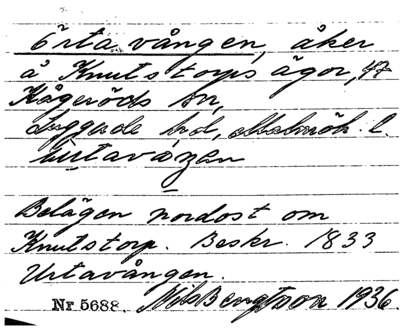 Örtavången, åker
å Knutstorps ägor,
Kågeröds sn,
Luggude hd, Malmöh. l.
Belägen nordost om
Knutstorp. Beskr. 1833
Urtavången.
Nr 5688. Nils Bengtsson 1936